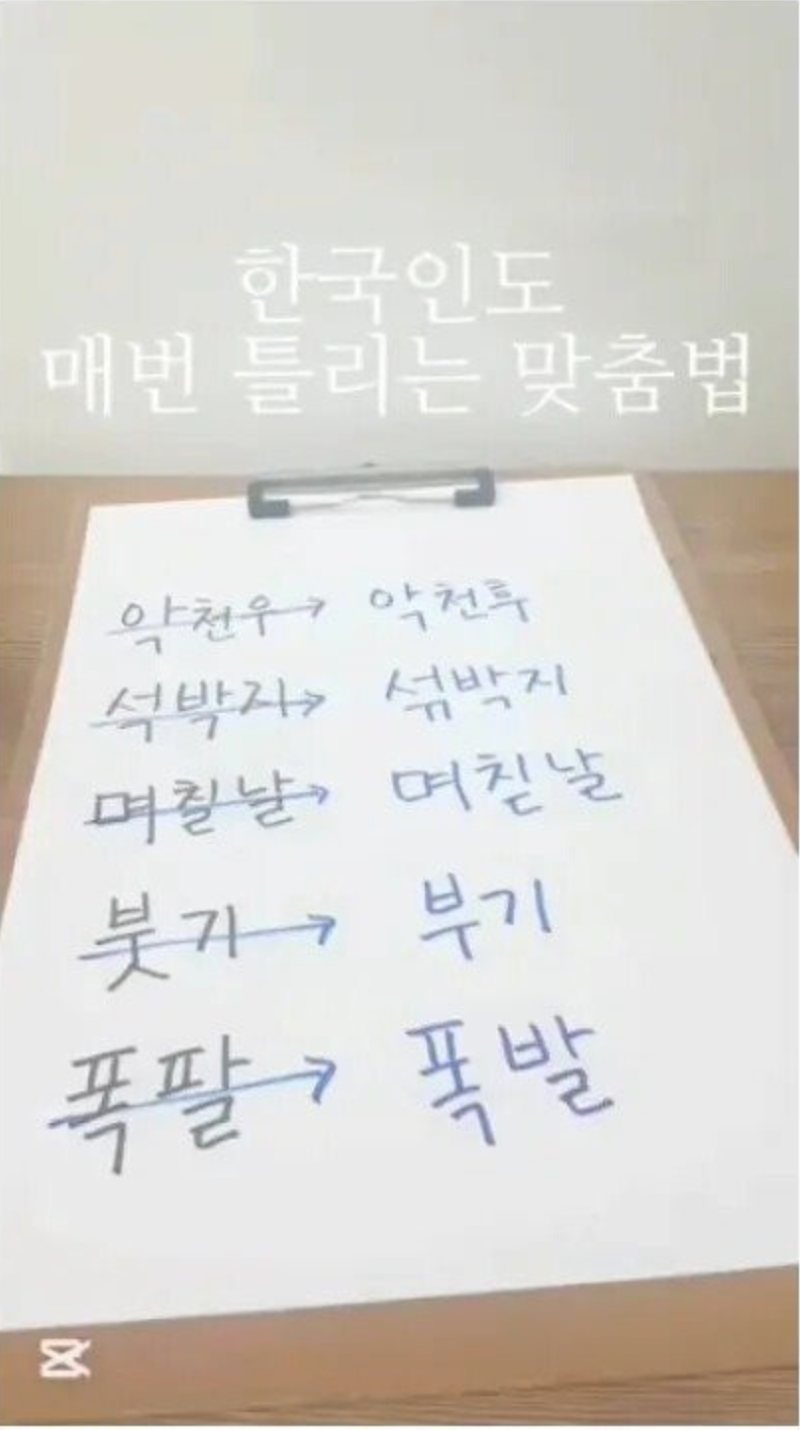 한국인도
매번 틀리는 맞춤법
악천우→ 악천후
석박지→ 섞박지
며칠날→ 며칟날
붓기→ 부기
폭팔→ 폭발